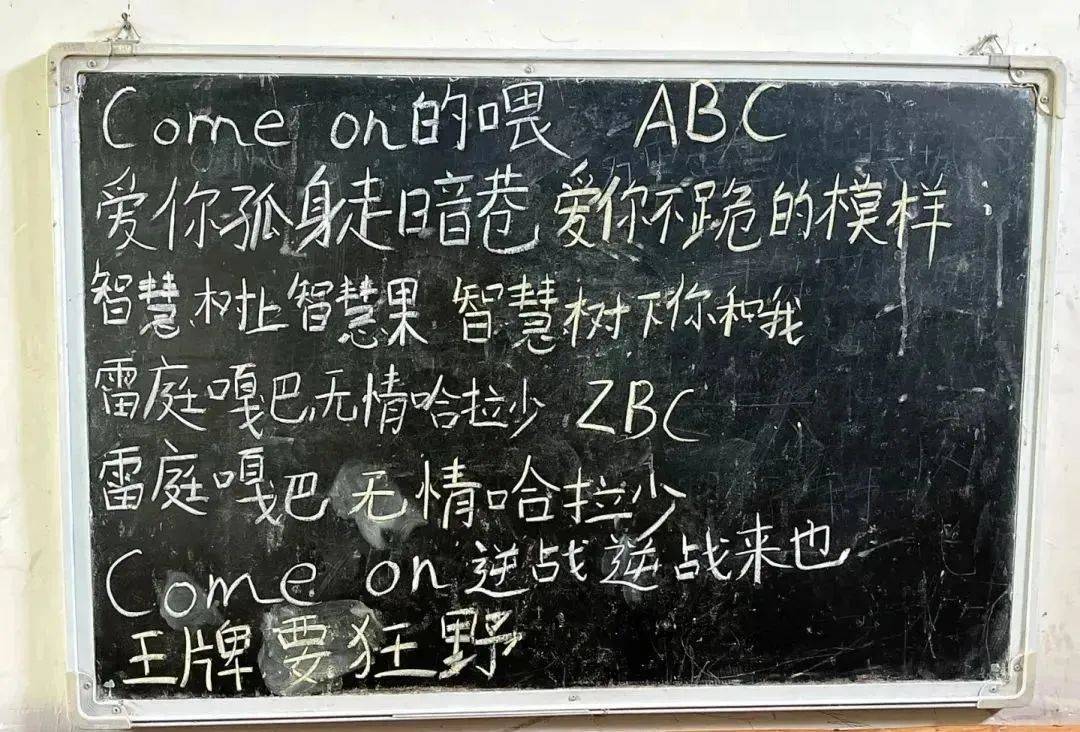 Come on的喂 ABC
爱你孤身走暗巷 爱你不跪的模样
智慧树上智慧果 智慧树下你和我
雷庭嘎巴无情哈拉少 ZBC
雷庭嘎巴无情哈拉少
Come on逆战逆战来也
王牌要狂野